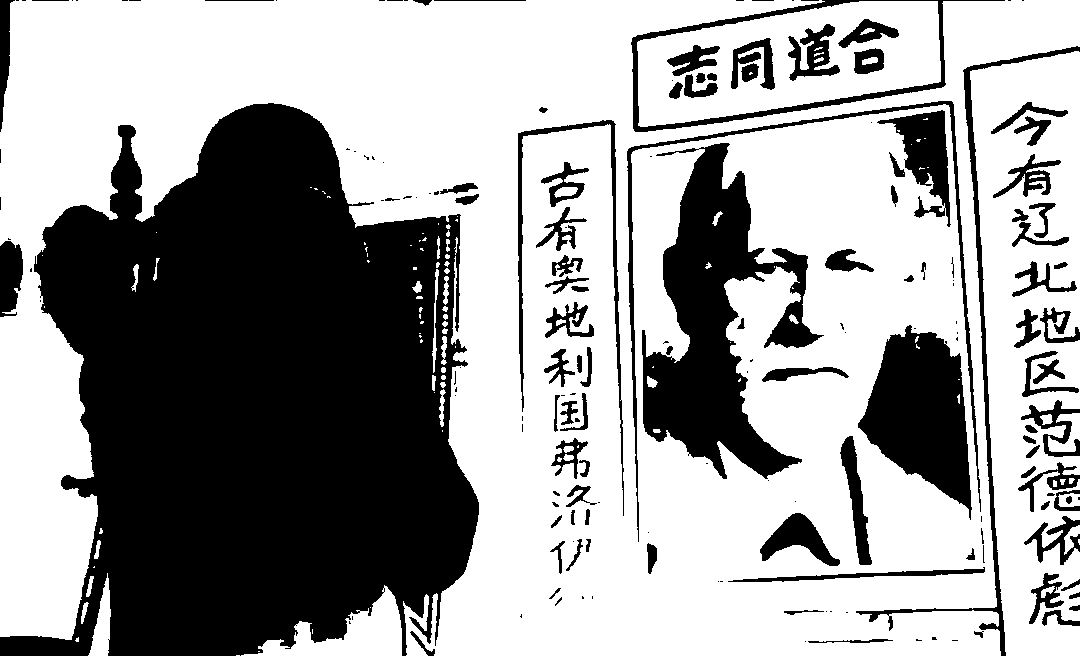 志同道合
古有奥地利国弗洛伊
今有辽北地区范德依彪